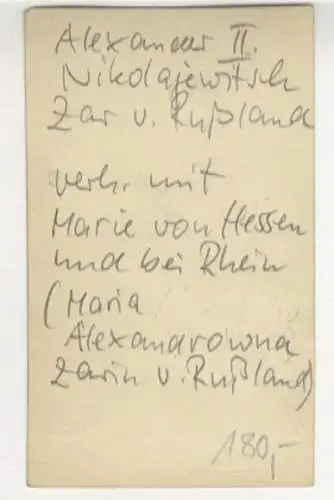 Alexander II.
Nikolajewitsch
Zar v. Rußland
verh. mit
Marie von Hessen
und bei Rhein
(Maria
Alexandrowna
Zarin v. Rußland)
180,-